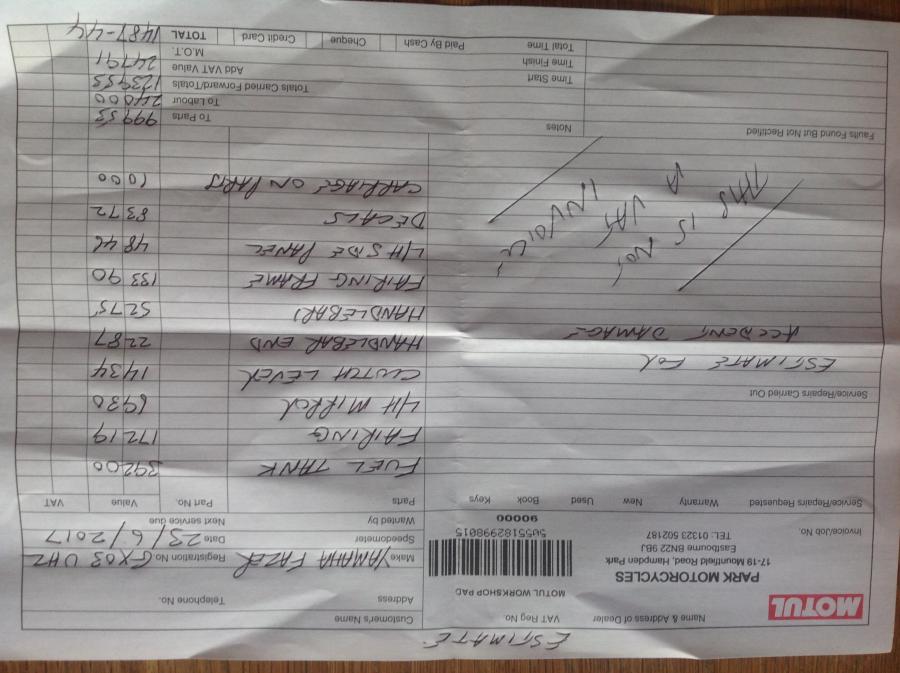 ESTIMATE
Name & Address of Dealer
VAT Reg No.
Customer's Name
MOTUL
MOTUL WORKSHOP PAD
Address
Telephone No.
PARK MOTORCYCLES
17-19 Mountfield Road, Hampden Park
Eastbourne BN22 9BJ
TEL: 01323 502187
5055182998015
90000
Make YAMAHA FAZER Registration No. GX03 UHZ
Invoice/Job No.
Speedometer Date 23/6/2017
Wanted by Next service due
Service/Repairs Requested Warranty New Used Book Keys
Parts Part No. Value VAT
FUEL TANK 392 00
FAIRING 172 19
L/H MIRROR 69 30
Service/Repairs Carried Out
CLUTCH LEVER 14 34
ESTIMATE FOR
ACCIDENT DAMAGE
HANDLEBAR END 22 87
HANDLEBAR 52 75
FAIRING FRAME 133 90
L/H SIDE PANEL 48 46
DECALS 83 72
CARRIAGE ON PARTS 10 00
THIS IS NOT
A VAT
INVOICE
Faults Found But Not Rectified
Notes
To Parts 999 53
To Labour 240 00
Time Start
Totals Carried Forward/Totals 1239 53
Time Finish
Add VAT Value 247 91
M.O.T.
Total Time
Paid By Cash Cheque Credit Card TOTAL 1487-44